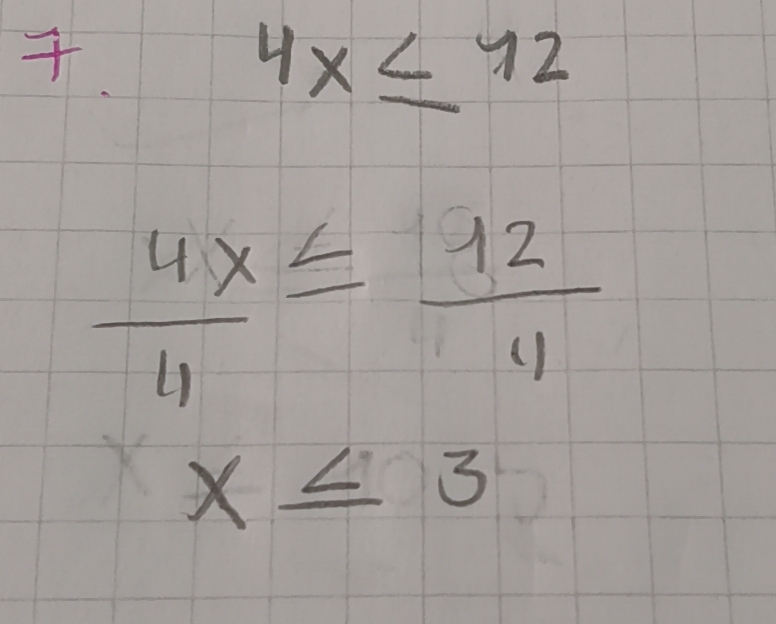 7. 4x ≤ 12
4x ≤ 12
4 4
x ≤ 3